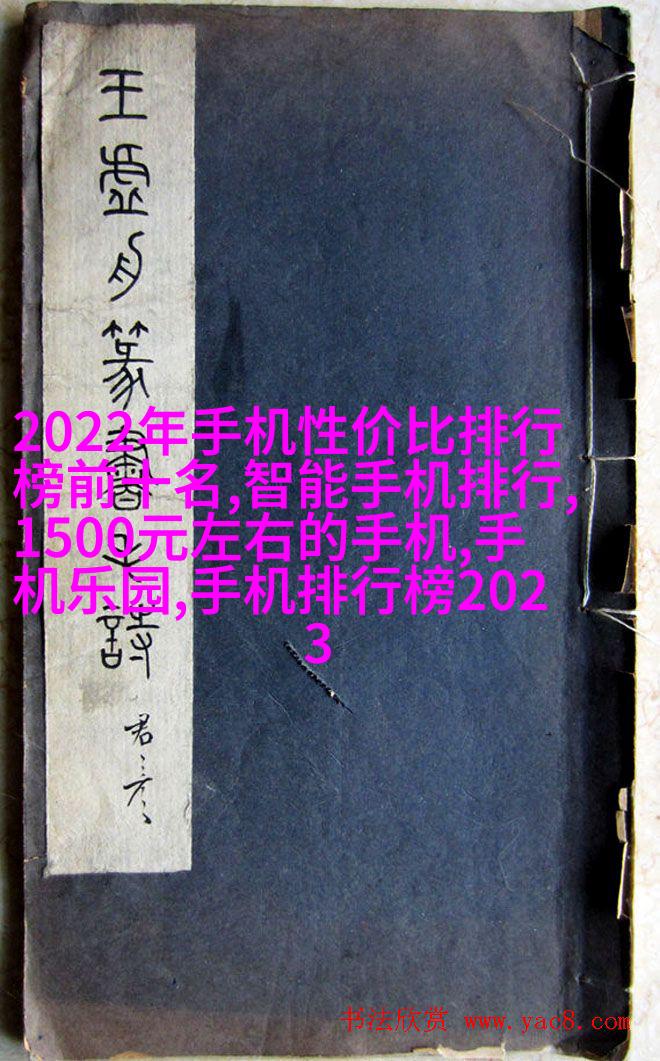 王虚舟篆書千字詩
君彦
2022年手机性价比排行
榜前十名,智能手机排行,
1500元左右的手机,手
机乐园,手机排行榜202
3
书法欣赏 www.yac8.com